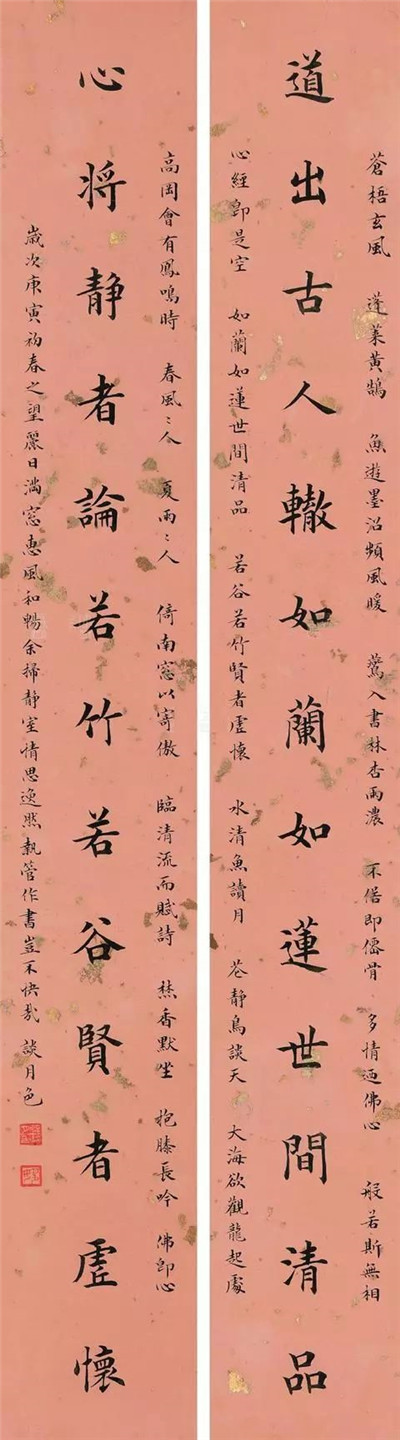 蒼梧玄風 蓬萊黃鵠 魚遊墨沼頻風暖 鶯入書林杏雨濃 不俗即僊骨 多情迺佛心 般若斯無相
道出古人轍如蘭如蓮世間清品
心經即是空 如蘭如蓮世間清品 若谷若竹賢者虛懷 水清魚讀月 花静鳥談天 大海欲觀龍起處
高岡會有鳳鳴時 春風〻人 夏雨〻人 倚南窓以寄傲 臨清流而賦詩 焚香默坐 抱膝長吟 佛即心
心将静者論若竹若谷賢者虛懷
歲次庚寅初春之望麗日滿窓惠風和暢余掃静室情思逸然執管作書豈不快哉 談月色